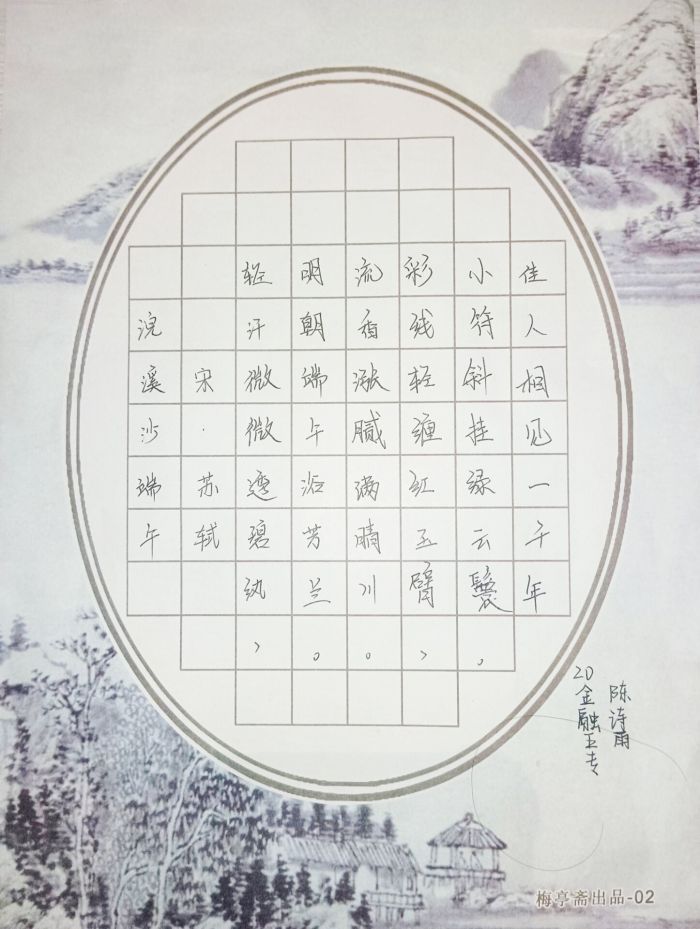 浣溪沙端午
宋·苏轼
轻汗微微透碧纨，
明朝端午浴芳兰。
流香涨腻满晴川。
彩线轻缠红玉臂，
小符斜挂绿云鬟。
佳人相见一千年
20金融五专
陈诗雨
梅亭斋出品-02